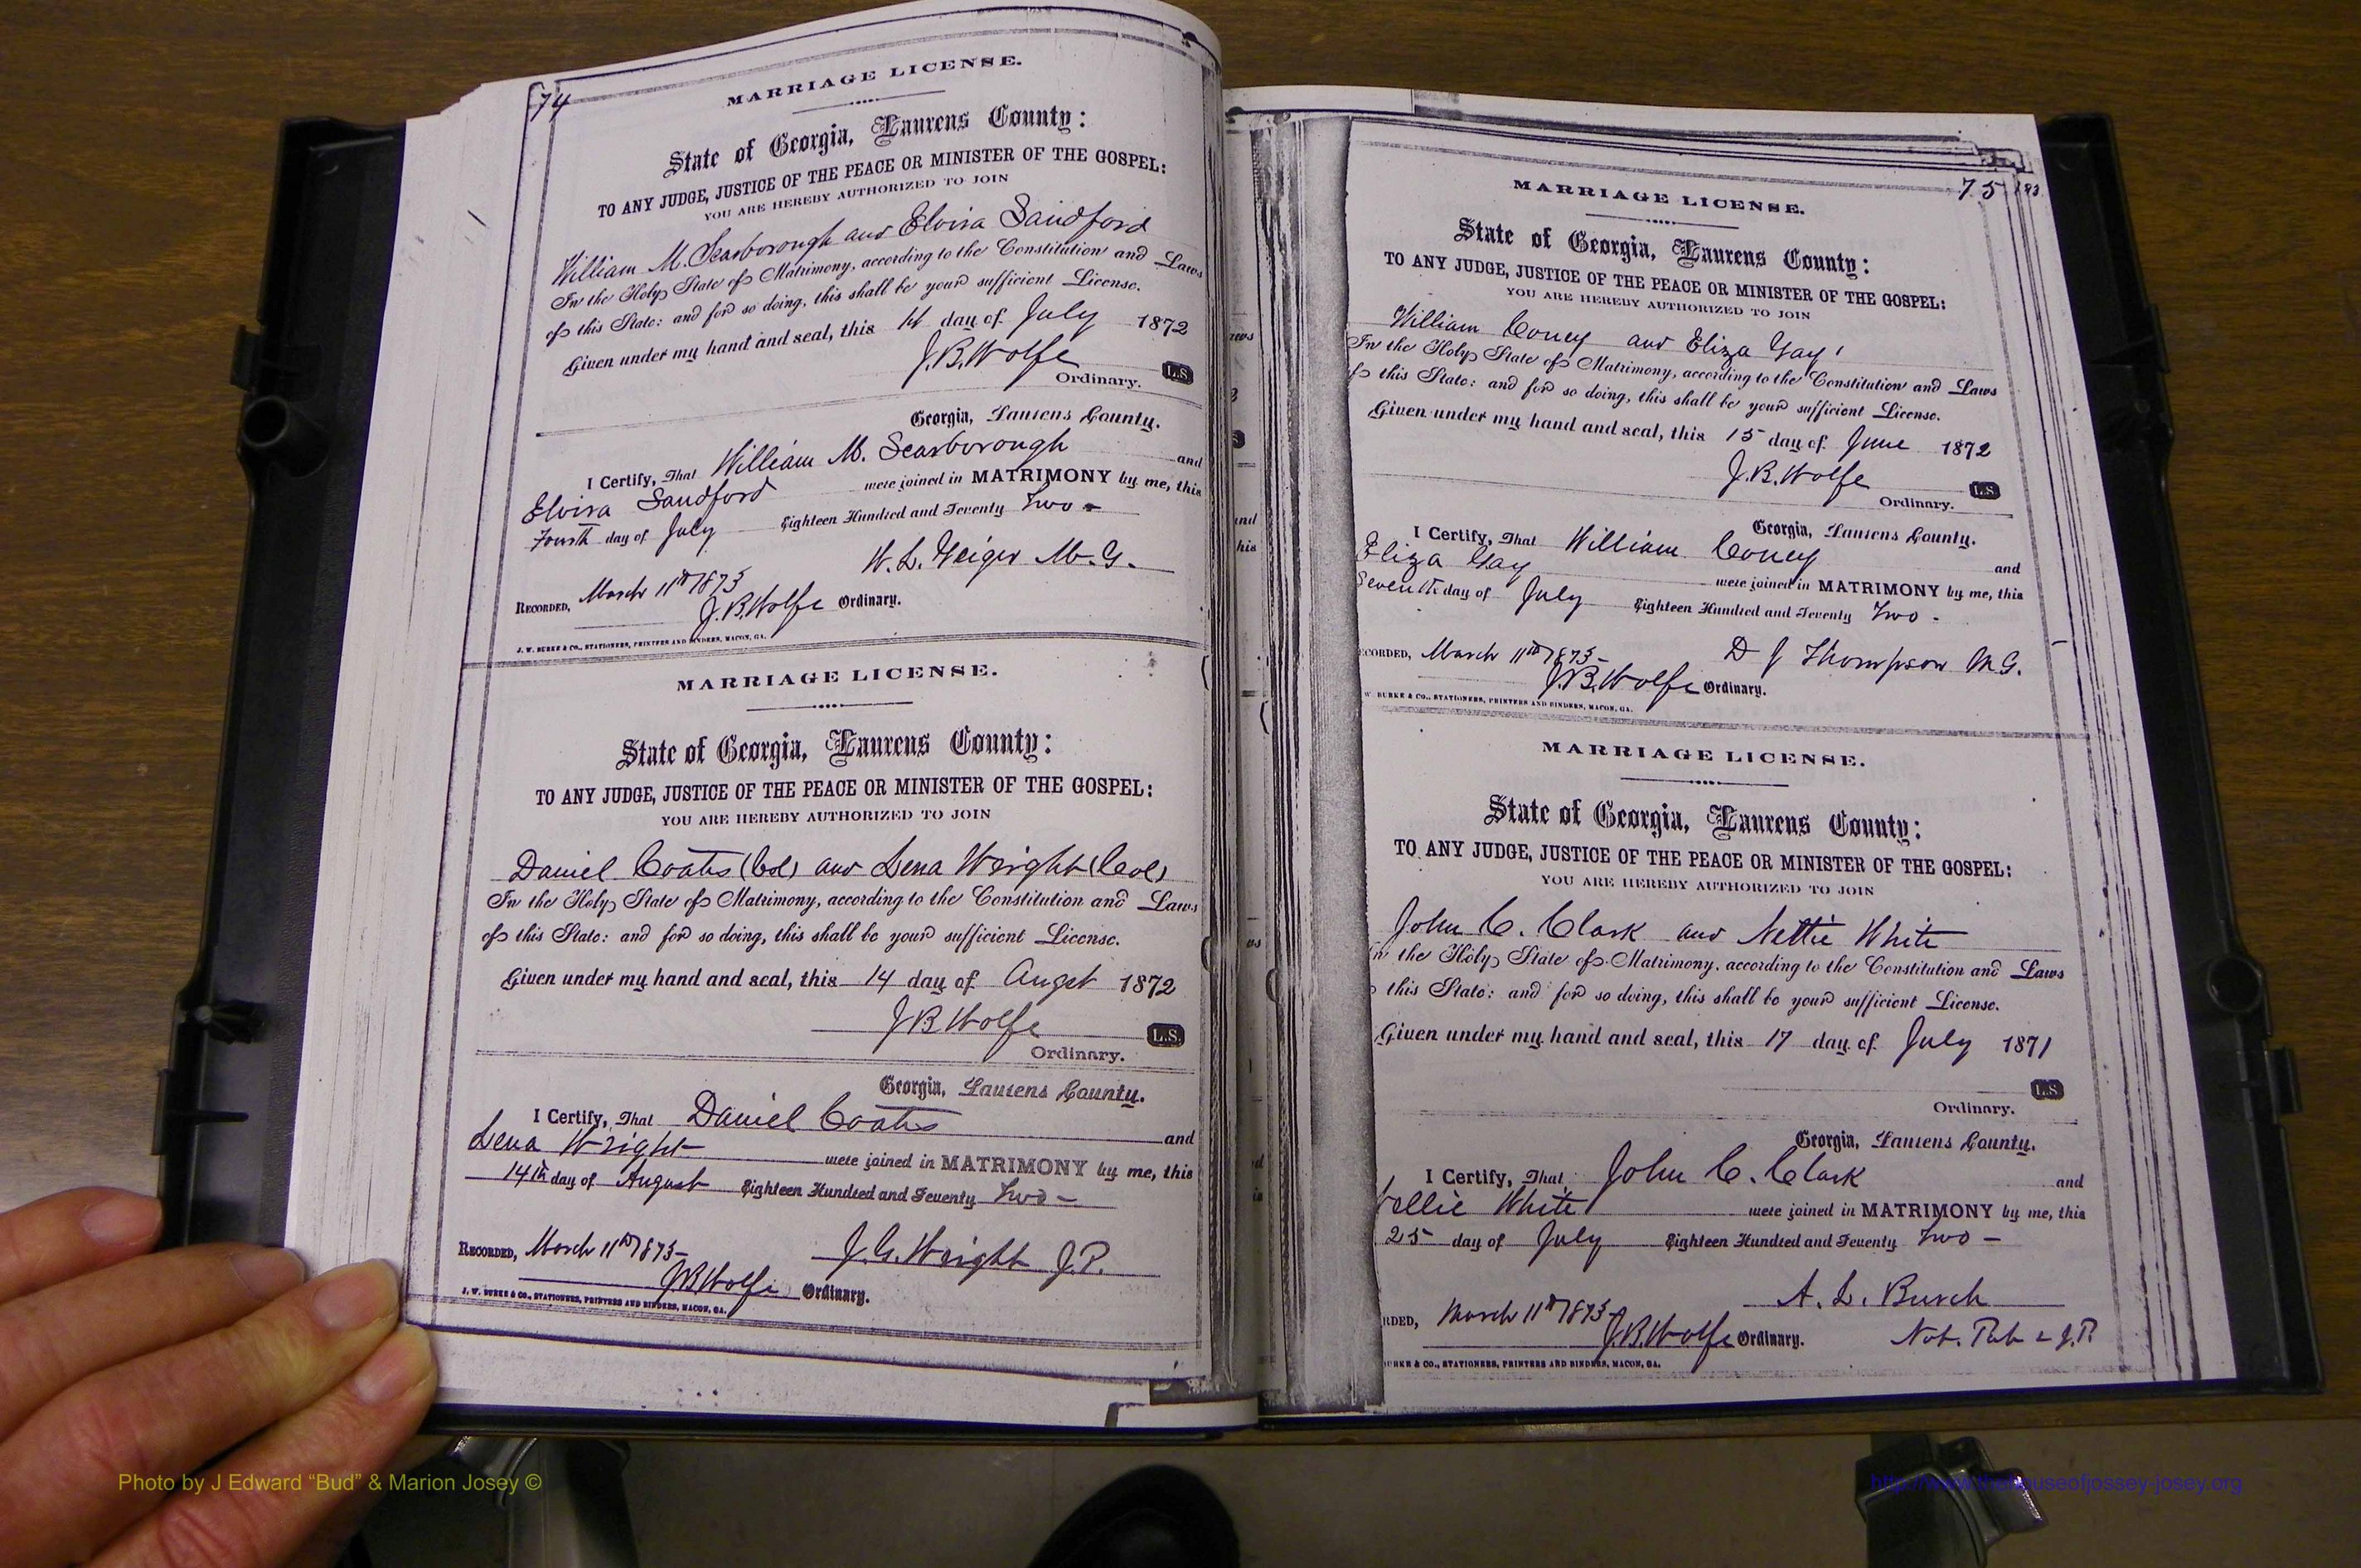 74
MARRIAGE LICENSE.
State of Georgia, Laurens County:
TO ANY JUDGE, JUSTICE OF THE PEACE OR MINISTER OF THE GOSPEL:
YOU ARE HEREBY AUTHORIZED TO JOIN
William M. Scarborough and Elvira Sandford
In the Holy State of Matrimony, according to the Constitution and Laws
of this State: and for so doing, this shall be your sufficient License.
Given under my hand and seal, this day of July 1872
J.B. Wolfe L.S.
Ordinary.
Georgia, Laurens County.
I Certify, That William M. Scarborough and
Elvira Sandford were joined in MATRIMONY by me, this
Fourth day of July Eighteen Hundred and Seventy Two -
W. L. Geiger M.G.
RECORDED, March 11th 1873
J.B. Wolfe Ordinary.
J. W. BURKE & CO., STATIONERS, PRINTERS AND BINDERS, MACON, GA.
MARRIAGE LICENSE.
State of Georgia, Laurens County:
TO ANY JUDGE, JUSTICE OF THE PEACE OR MINISTER OF THE GOSPEL:
YOU ARE HEREBY AUTHORIZED TO JOIN
Daniel Coats (Col) and Lena Wright (Col)
In the Holy State of Matrimony, according to the Constitution and Laws
of this State: and for so doing, this shall be your sufficient License.
Given under my hand and seal, this 14 day of Augst 1872
J B Wolfe L.S.
Ordinary.
Georgia, Laurens County.
I Certify, That Daniel Coats and
Lena Wright were joined in MATRIMONY by me, this
14th day of August Eighteen Hundred and Seventy Two -
RECORDED, March 11th 1873 J. G. Wright J.P.
J.B. Wolfe Ordinary.
J. W. BURKE & CO., STATIONERS, PRINTERS AND BINDERS, MACON, GA.
75
MARRIAGE LICENSE.
State of Georgia, Laurens County:
TO ANY JUDGE, JUSTICE OF THE PEACE OR MINISTER OF THE GOSPEL:
YOU ARE HEREBY AUTHORIZED TO JOIN
William Coney and Eliza Gay
In the Holy State of Matrimony, according to the Constitution and Laws
f this State: and for so doing, this shall be your sufficient License.
Given under my hand and seal, this 15 day of June 1872
J.B. Wolfe L.S.
Ordinary.
Georgia, Laurens County.
I Certify, That William Coney and
Eliza Gay were joined in MATRIMONY by me, this
Seventh day of July Eighteen Hundred and Seventy Two -
D J Thompson M.G.
ECORDED, March 11th 1873
J.B. Wolfe Ordinary.
W. BURKE & CO., STATIONERS, PRINTERS AND BINDERS, MACON, GA.
MARRIAGE LICENSE.
State of Georgia, Laurens County:
TO ANY JUDGE, JUSTICE OF THE PEACE OR MINISTER OF THE GOSPEL:
YOU ARE HEREBY AUTHORIZED TO JOIN
John C. Clark and Nettie White
In the Holy State of Matrimony, according to the Constitution and Laws
this State: and for so doing, this shall be your sufficient License.
Given under my hand and seal, this 17 day of July 1871
L.S.
Ordinary.
Georgia, Laurens County.
I Certify, That John C. Clark and
White were joined in MATRIMONY by me, this
25 day of July Eighteen Hundred and Seventy Two -
A. L. Burch
RDED, March 11th 1873
J.B. Wolfe Ordinary. Not. Pub & J.P.
URKE & CO., STATIONERS, PRINTERS AND BINDERS, MACON, GA.
Photo by J Edward “Bud” & Marion Josey ©
http://www.thehouseofjossey-josey.org